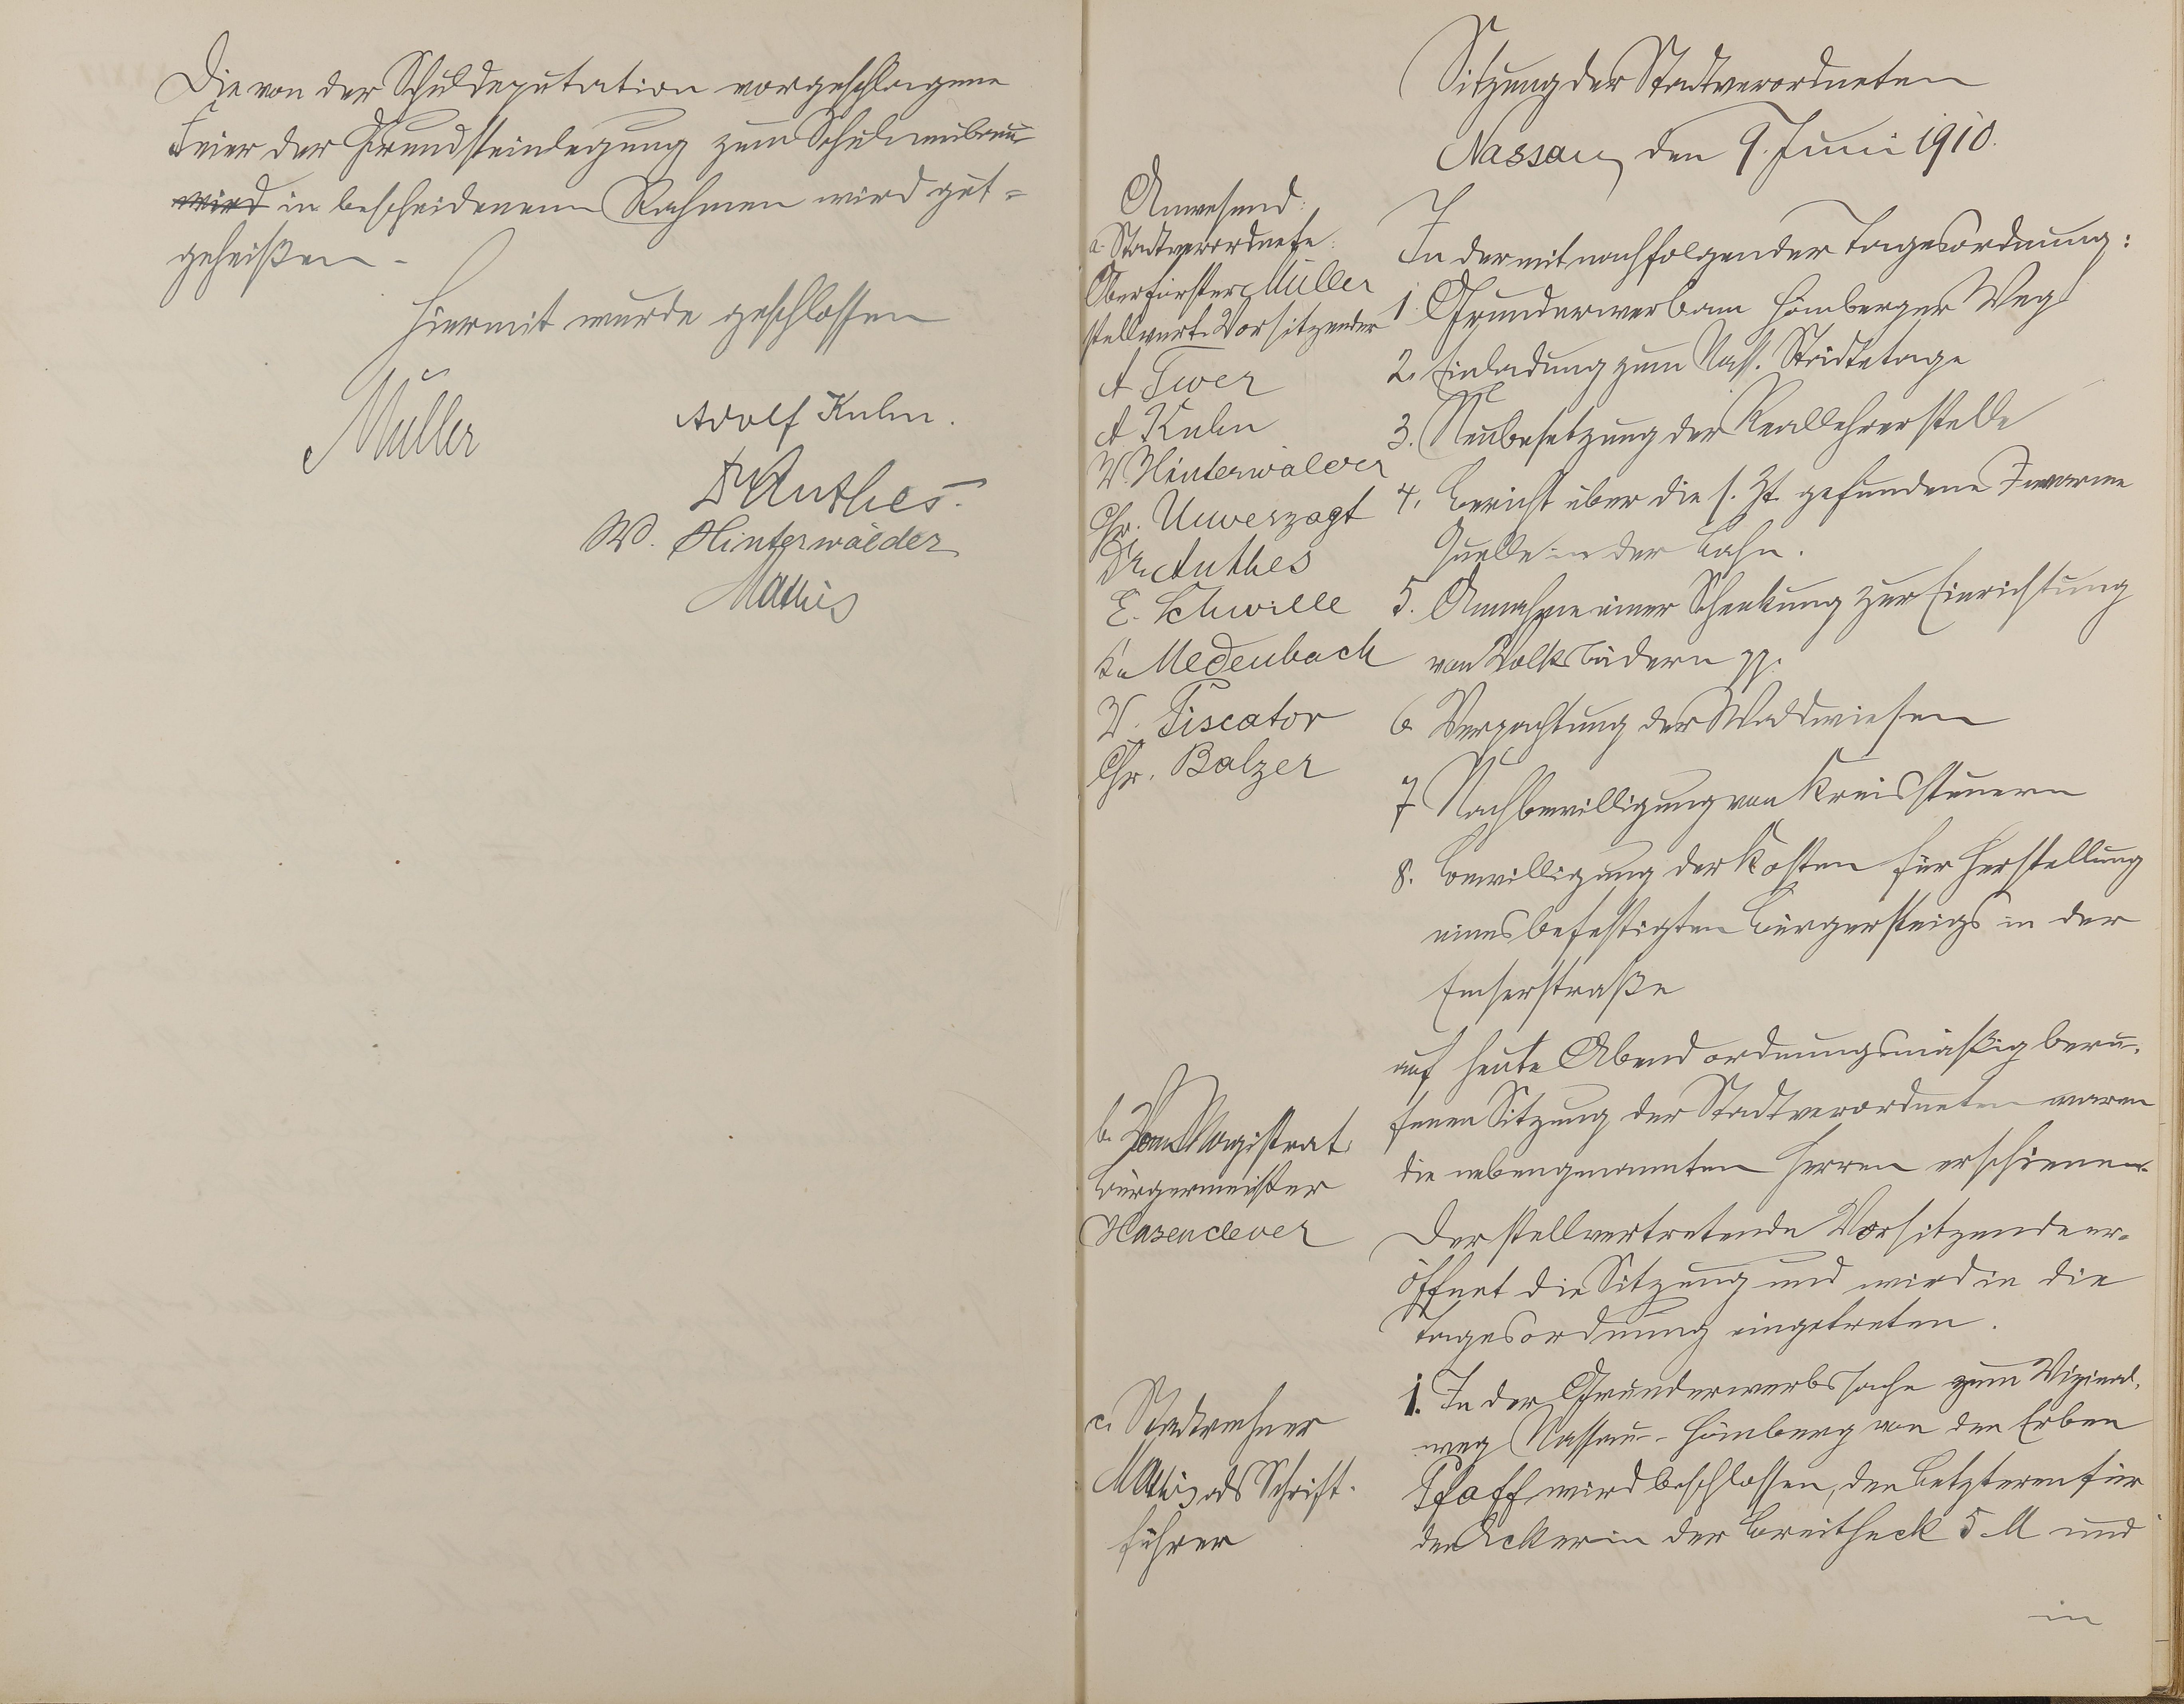 Die von der Schuldeputation vorgeschlagene
Feier der Grundsteinlegung zum Schulneubau
wird in bescheidenem Rahmen wird gut=
geheißen.
Hiermit wurde geschlossen
Müller
Adolf Kuhn.
Dr Anthes.
W. Hinterwälder
Mathis
Sitzung der Stadtverordneten
Nassau, den 9. Juni 1910.
Anwesend:
a. Stadtverordnete:
Oberförster Müller
stellvert. Vorsitzender
A Twer
A Kuhn
W. Hinterwälder
Chr. Unverzagt
Dr. Anthes
E. Schwille
K. Medenbach
W. Piscator
Chr. Balzer
b. Vom Magistrat:
Bürgermeister
Hasenclever
c. Stadtrechner
Mathis als Schrift-
führer
In der mit nachfolgender Tagesordnung:
1. Grunderwerb am Hömberger Weg
2. Einladung zum Nass. Städtetage
3. Neubesetzung der Reallehrerstelle
4. Bericht über die s. Zt. gefundene warme
Quelle in der Lahn.
5. Annahme einer Schenkung zur Einrichtung
von Volksbädern pp.
6 Verpachtung der Waldwiesen
7 Nachbewilligung von Kreissteuern
8. Bewilligung der Kosten für Herstellung
eines befestigten Bürgersteigs in der
Emserstraße
auf heute Abend ordnungsmäßig beru-
fenen Sitzung der Stadtverordneten waren
die nebengenannten Herren erschienen.
Der stellvertretende Vorsitzende er-
öffnet die Sitzung und wird in die
Tagesordnung eingetreten.
1. In der Grunderwerbssache zum Vizinal-
weg Nassau-Hömberg von den Erben
Pfaff wird beschlossen, den Letzteren für
den Acker in der Breitheck 5 M und
in